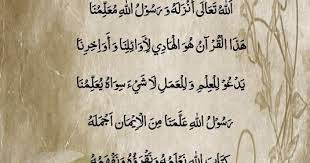 اَللهُ تَعَالَى أَنْزَلَهُ وَ رَسُوْلُ اللهِ مُعَلِّمُنَا
هَذَا الْقُرْآنُ هُوَ الْهَادِي لِأَوَائِلِنَا وَ أَوَاخِرِنَا
يَدْعُوْ لِلْعِلْمِ وَ لِلْعَمَلِ لَا شَيْءَ سِوَاهُ يُعَلِّمُنَا
رَسُوْلُ اللهِ عَلَّمَنَا مِنَ الْإِيْمَانِ أَجْمَلَهُ
كِتَابَ اللهِ نَعْلَمُهُ وَ نَقْرَؤُهُ وَ نَفْهَمُهُ